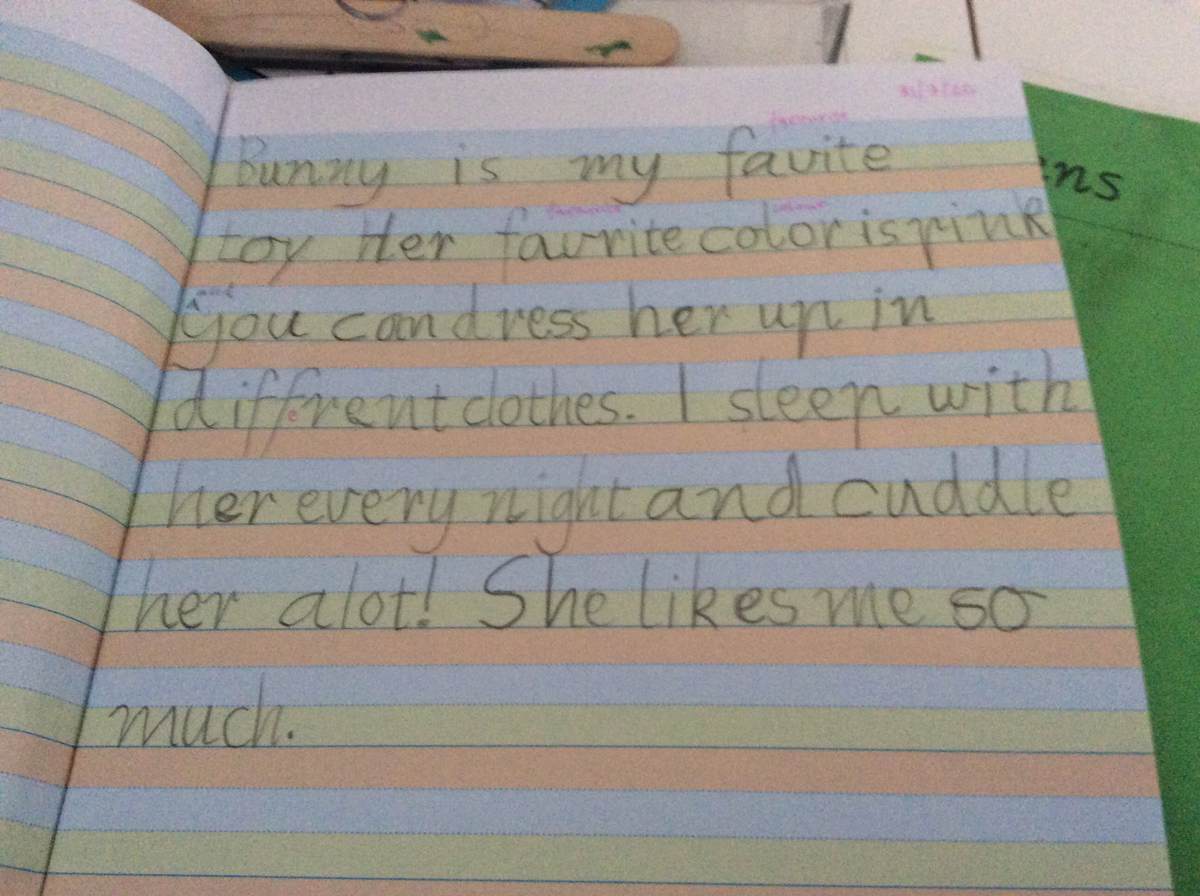 favourite
Bunny is my favite
favourite colour
toy Her favrite color is pink
and
you can dress her up in
diffrent clothes. I sleep with
e
her every night and cuddle
her alot! She likes me so
much.
ns